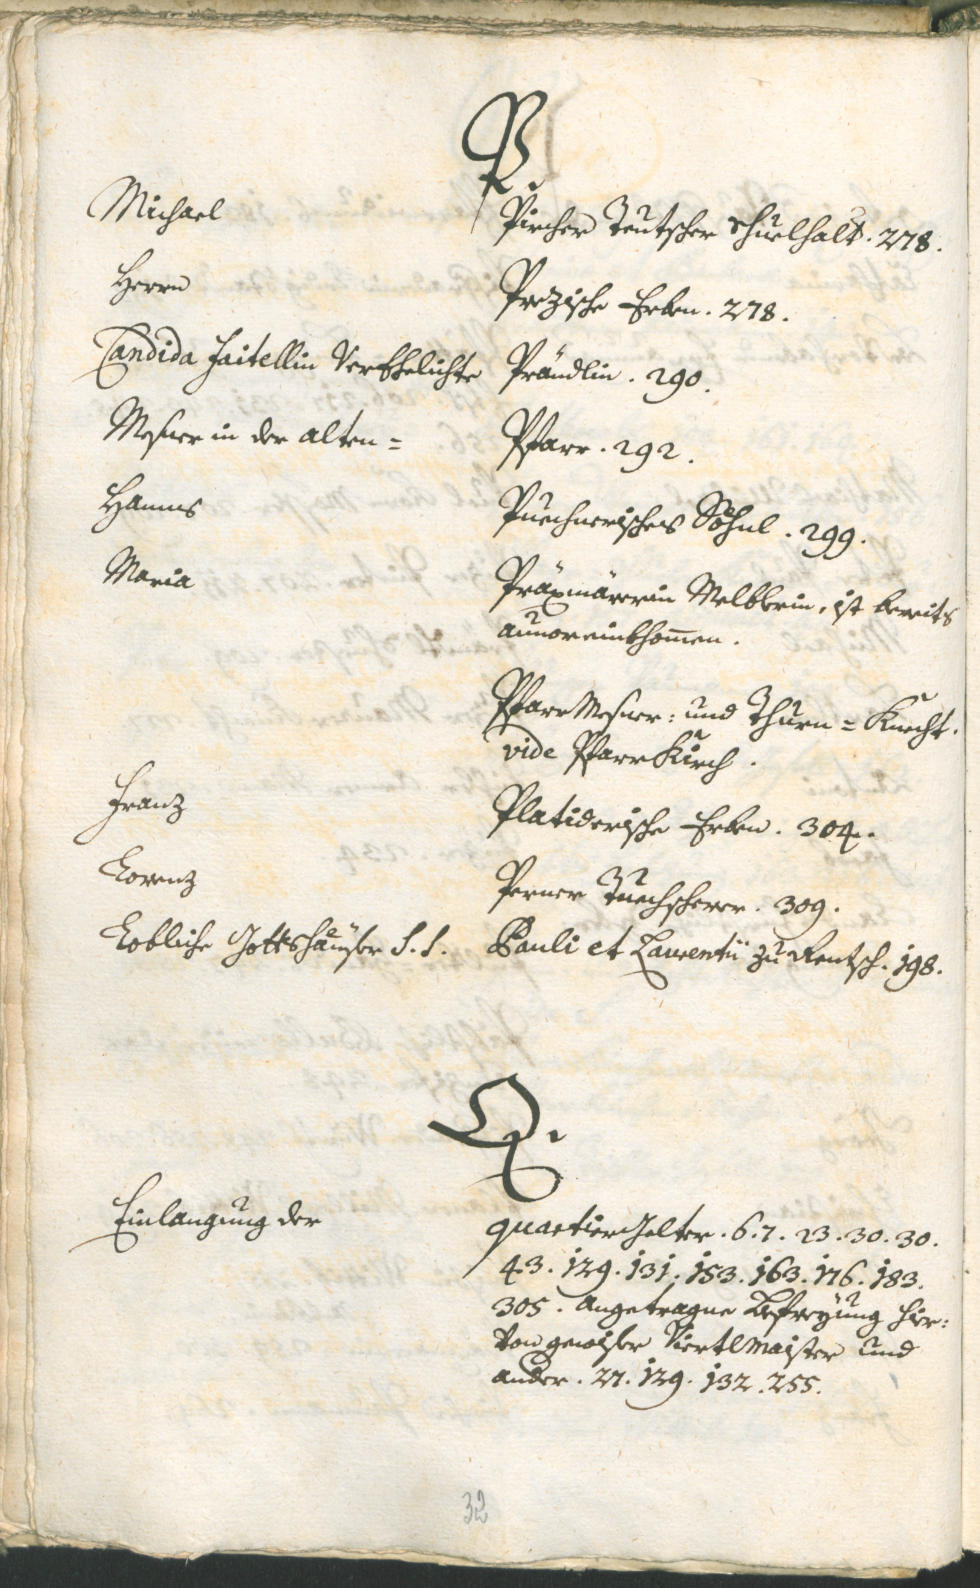 P.
Michael Pircher Teutscher Schuelhalt. 278.
Herrn Prezische Erben. 278.
Candida Haitellin Verehelichte Prändlin. 290.
Mesner in der alten= Pfarr. 292.
Hanns Puechnerisches Söhnl. 299.
Maria Präxmärerin Melblerin, ist bereits
anvor einkhomen.
Pfarr Mesner: und Thurn= Knecht.
vide Pfarr Kürch.
Franz Platiderische Erben. 304.
Lorenz Perner Tuechscherer. 309.
Lobliche Gottshäuser S. S. Pauli et Laurentii zu Rentsch. 198.
Q.
Einlangung der quartier Gelter. 6. 7. 23. 30. 30.
43. 129. 131. 153. 163. 176. 183.
305. Angetragne Befreyung hier:
von gewiser Viertlmaister und
ander. 27. 129. 132. 255.
32